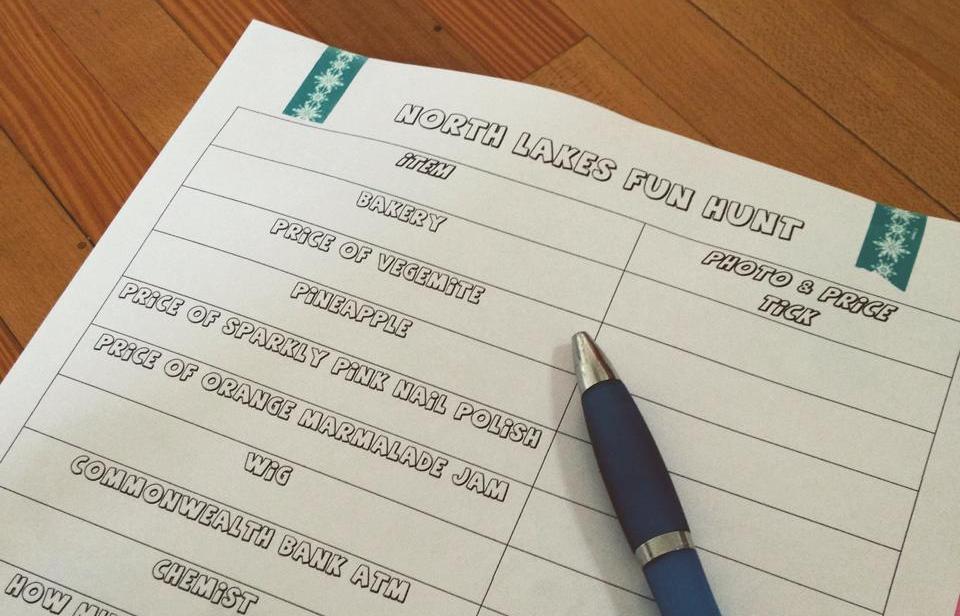 NORTH LAKES FUN HUNT
iTEM
PHOTO & PRiCE
TiCK
BAKERY
PRiCE OF VEGEMiTE
PiNEAPPLE
PRiCE OF SPARKLY PiNK NAiL POLiSH
PRiCE OF ORANGE MARMALADE JAM
WiG
COMMONWEALTH BANK ATM
CHEMiST
HOW